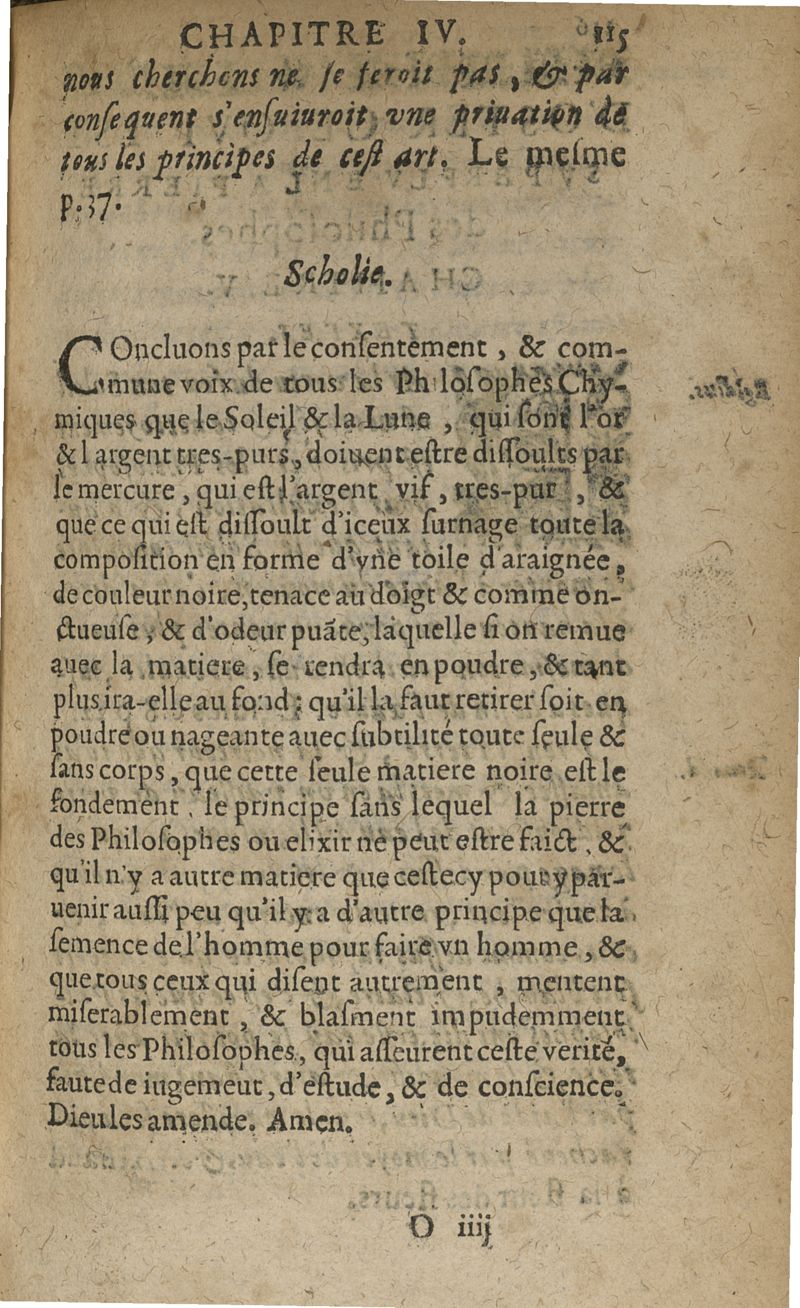 CHAPITRE IV. 115
nous cherchons ne se feroit pas, & par
consequent s'ensuiuroit vne priuation de
tous les principes de cest art. Le mesme
p. 37.
Scholie.
COncluons par le consentement, & com-
mune voix de tous les Philosophes Chy-
miques que le Soleil & la Lune, qui sont l'or
& l argent tres-purs, doiuent estre dissoults par
le mercure, qui est l'argent vif, tres-pur, &
que ce qui est dissoult d'iceux surnage toute la
composition en forme d'vne toile d'araignée,
de couleur noire, tenace au doigt & comme on-
ctueuse, & d'odeur puāte, laquelle si on remue
auec la matiere, se rendra en poudre, & tant
plus ira-elle au fond: qu'il la faut retirer soit en
poudre ou nageante auec subtilité toute seule &
sans corps, que cette seule matiere noire est le
fondement, le principe sans lequel la pierre
des Philosophes ou elixir ne peut estre faict, &
qu'il n'y a autre matiere que cestecy pour y par-
uenir aussi peu qu'il y a d'autre principe que la
semence de l'homme pour faire vn homme, &
que tous ceux qui disent autrement, mentent
miserablement, & blasment impudemment
tous les Philosophes, qui asseurent ceste verité,
faute de iugemeut, d'estude, & de conscience.
Dieu les amende. Amen.
O iiij